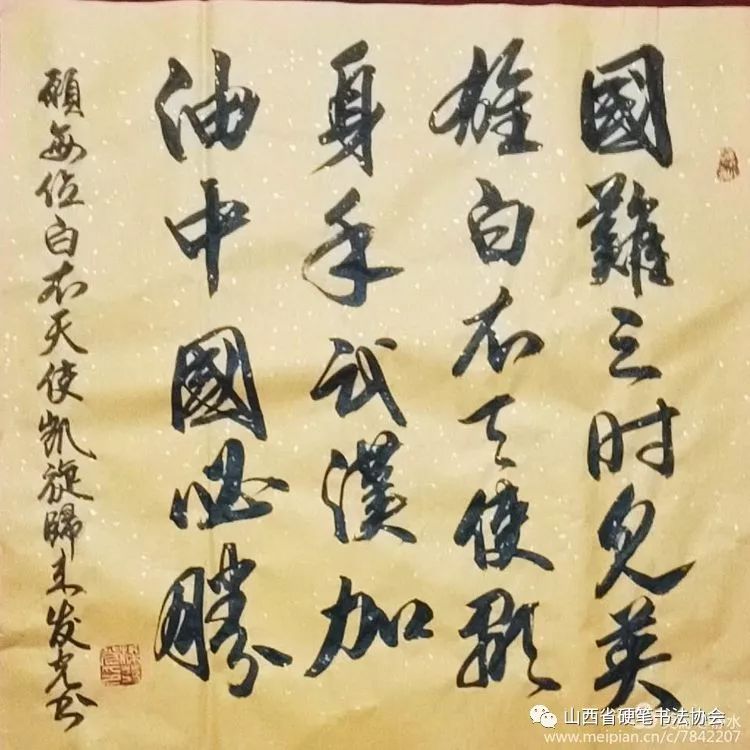 國難之时見英
雄白衣天使顯
身手武漢加
油中國必勝
願每位白衣天使凱旋歸来发光书
山西省硬笔书法协会
www.meipian.cn/c/7842207